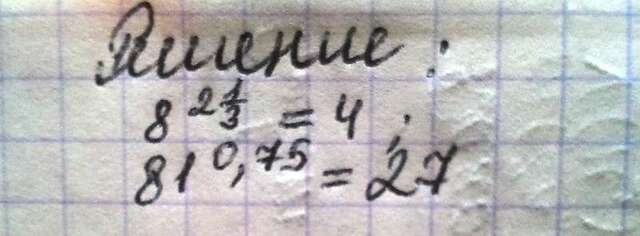 Решение:
8^{2\frac{1}{3}} = 4;
81^{0,75} = 27